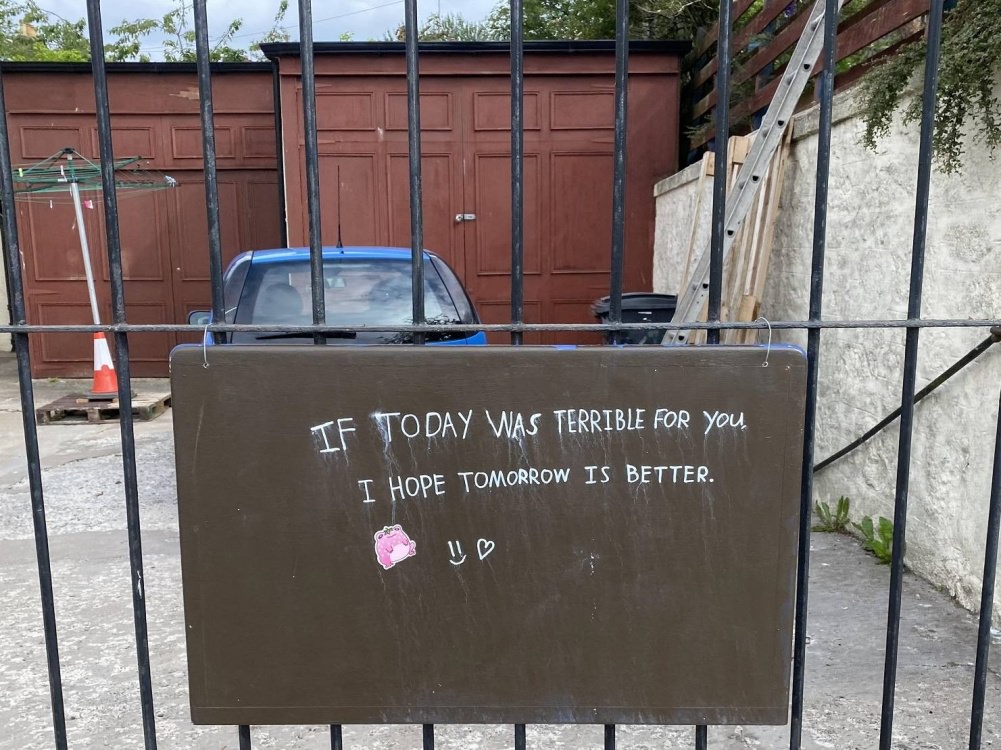 IF TODAY WAS TERRIBLE FOR YOU
I HOPE TOMORROW IS BETTER.